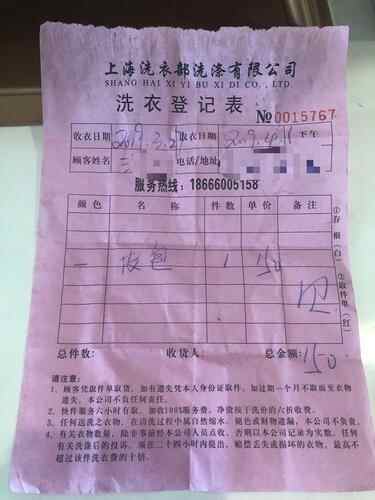 上海洗衣部洗涤有限公司
SHANG HAI XI YI BU XI DI CO., LTD.
洗衣登记表
№0015767
收衣日期 2019.3.2 取衣日期 2019. 下午
顾客姓名 电话/地址
服务热线：18666005158
颜色 名称 件数 单价 备注
一 皮包 1 150
①存根(白)
②取件单(红)
总件数： 收货人： 总金额：150
请注意：
1、顾客凭取件单取货，如有遗失凭本人身份证取件，如过期一个月不取而至衣物
遗失，本公司不负任何责任。
2、快件服务六小时有取，加收100%服务费，净熨按干洗价的六折收费。
3、任何送洗之衣物，在清洗过程中属自然缩水、褪色或附物遗漏，本公司不负责。
4、有关衣物数量，除非事前经本公司人员点收，否则以本公司记录为实数，任何
有关洗涤后的投诉，须在二十四小时内提出，赔偿丢失或损坏的衣物，最高不
超过该件洗衣费的十倍。